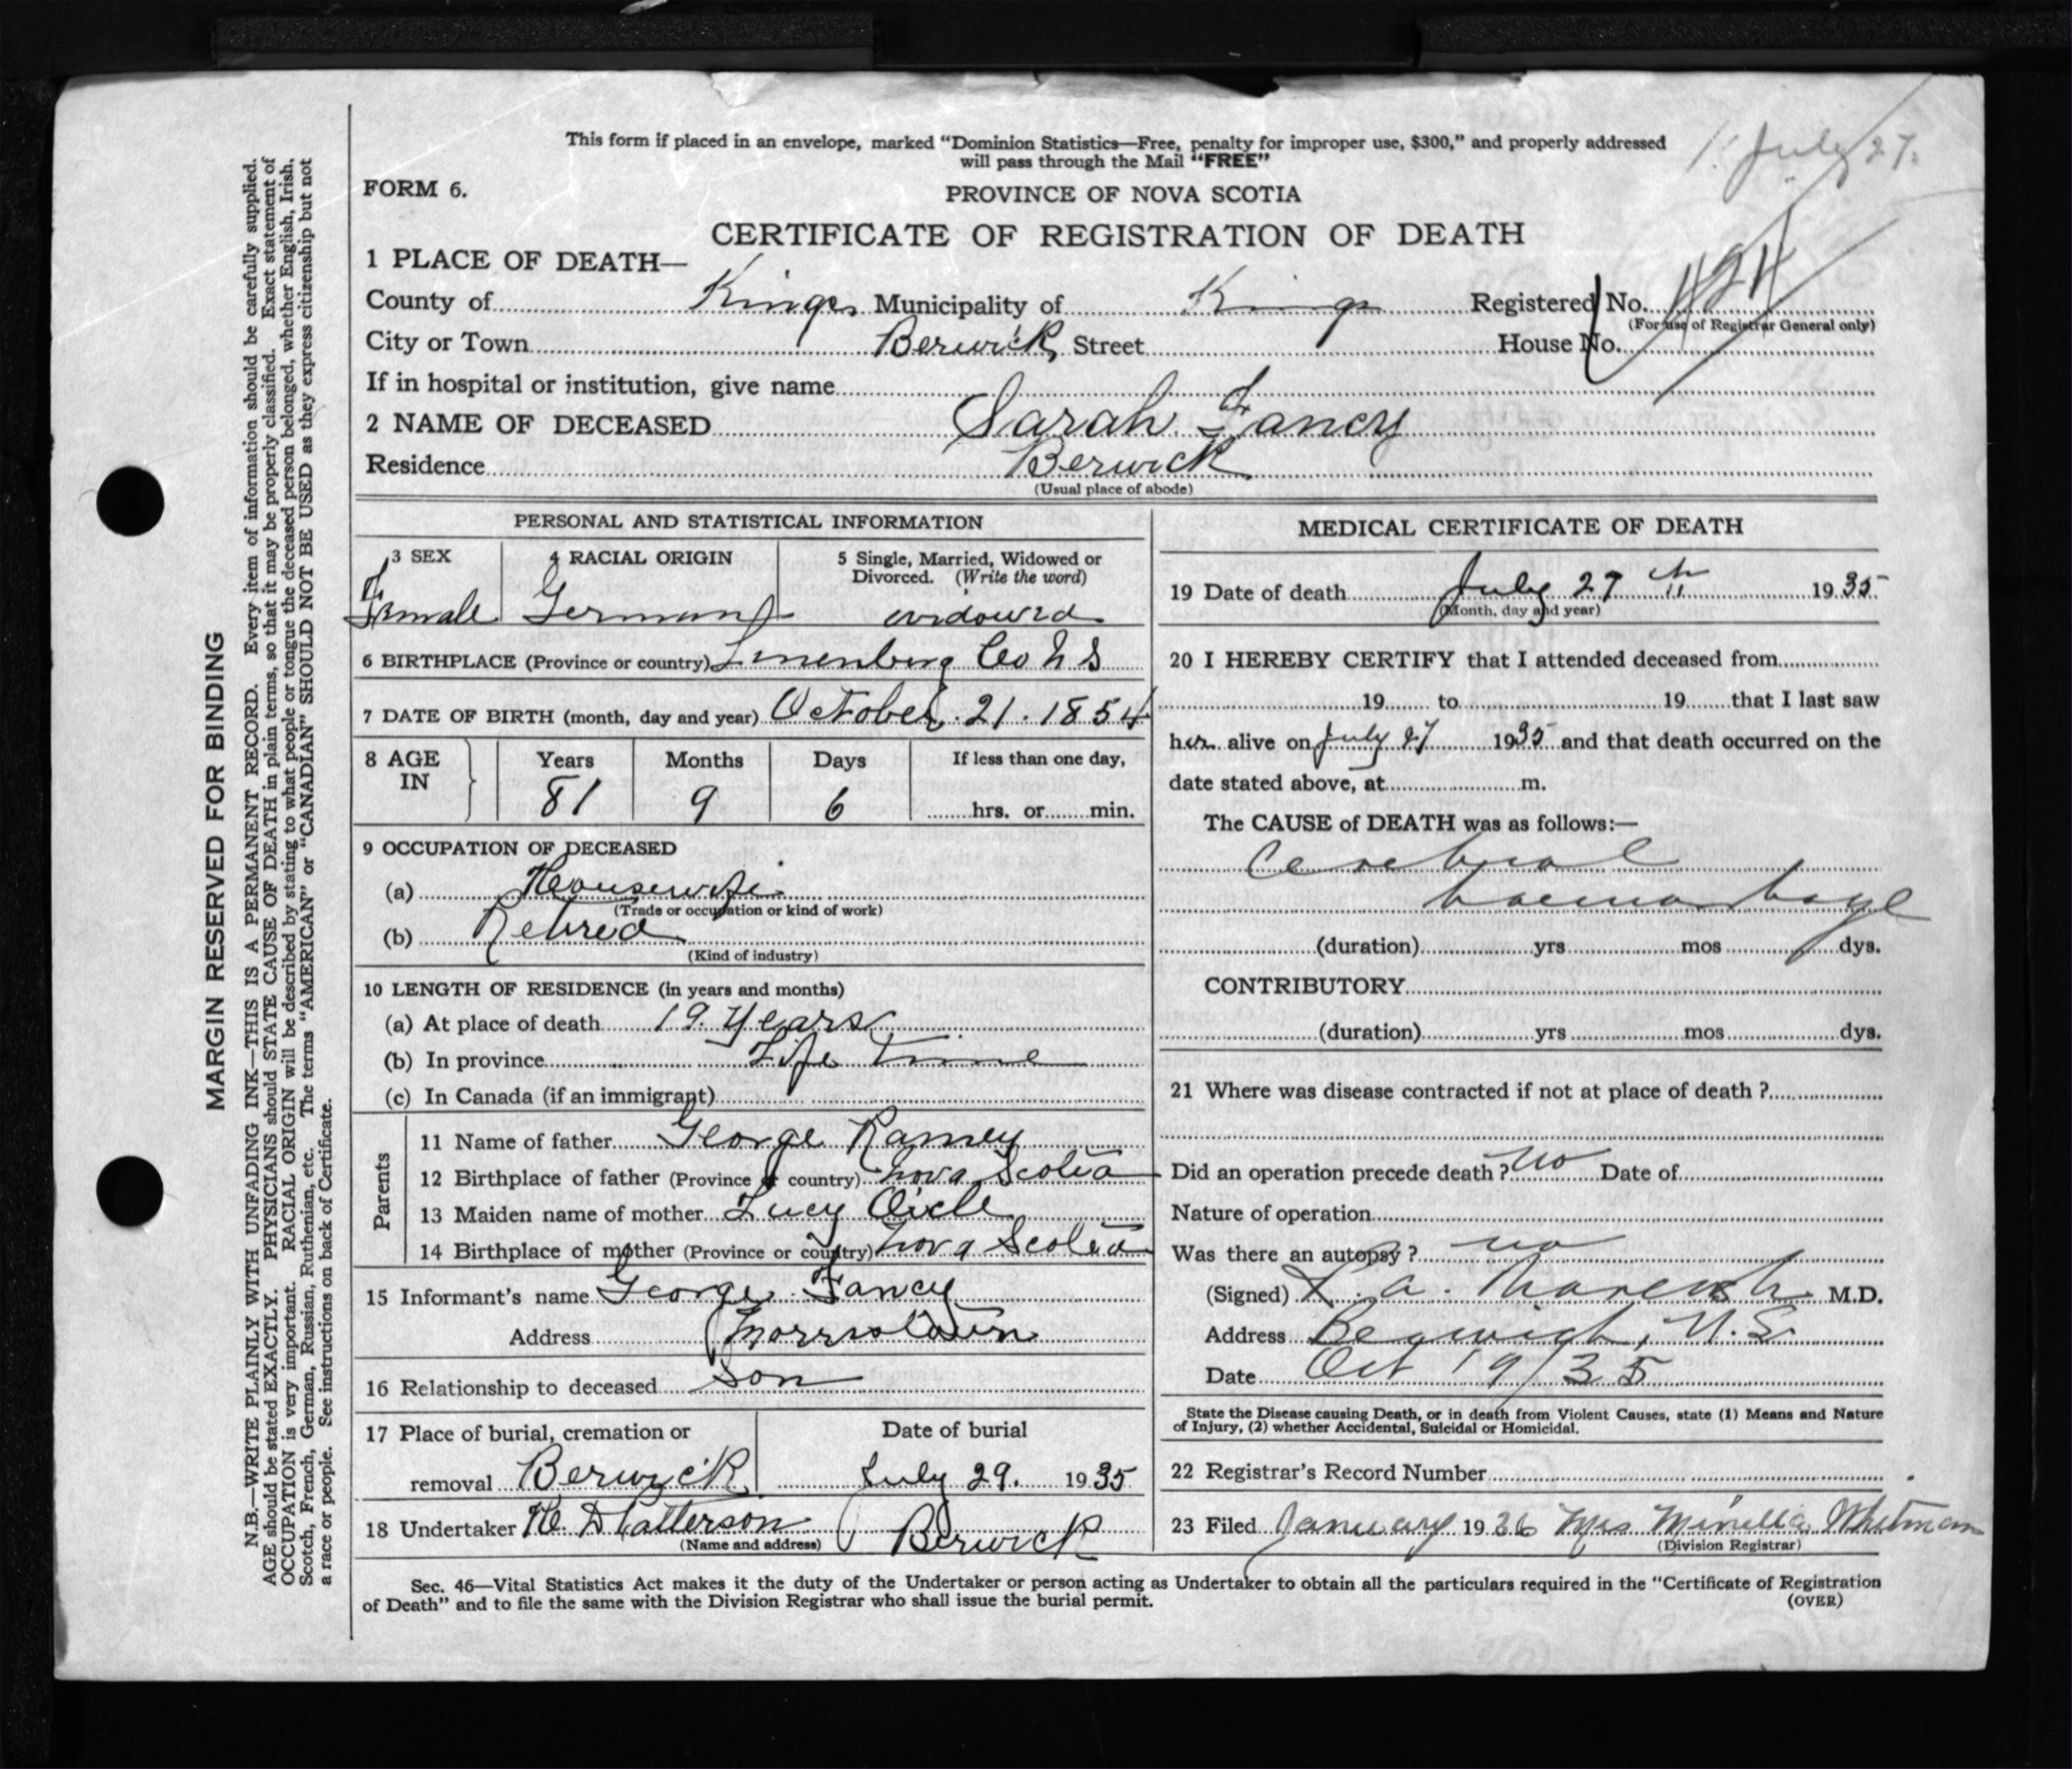 This form if placed in an envelope, marked “Dominion Statistics—Free, penalty for improper use, $300,” and properly addressed
will pass through the Mail “FREE”
July 27.
FORM 6.
PROVINCE OF NOVA SCOTIA
CERTIFICATE OF REGISTRATION OF DEATH
1 PLACE OF DEATH—
County of Kings Municipality of Kings Registered No. 424
(For use of Registrar General only)
City or Town Berwick, Street House No.
If in hospital or institution, give name
2 NAME OF DECEASED Sarah Fancy
Residence Berwick
(Usual place of abode)
PERSONAL AND STATISTICAL INFORMATION
3 SEX 4 RACIAL ORIGIN 5 Single, Married, Widowed or
Divorced. (Write the word)
Female German widowed
6 BIRTHPLACE (Province or country) Lunenburg Co N S
7 DATE OF BIRTH (month, day and year) October 21. 1854
8 AGE IN Years Months Days If less than one day,
81 9 6 hrs. or min.
9 OCCUPATION OF DECEASED
(a) Housewife
(Trade or occupation or kind of work)
(b) Retired
(Kind of industry)
10 LENGTH OF RESIDENCE (in years and months)
(a) At place of death 19 years
(b) In province Life time
(c) In Canada (if an immigrant)
Parents
11 Name of father George Ramey
12 Birthplace of father (Province or country) Nova Scotia
13 Maiden name of mother Lucy
14 Birthplace of mother (Province or country) Nova Scotia
15 Informant's name George Fancy
Address Morristown
16 Relationship to deceased Son
17 Place of burial, cremation or Date of burial
removal Berwick July 29. 1935
18 Undertaker H. D Patterson Berwick
(Name and address)
MEDICAL CERTIFICATE OF DEATH
19 Date of death July 27th 1935
(Month, day and year)
20 I HEREBY CERTIFY that I attended deceased from
19 to 19 that I last saw
her alive on July 27 1935 and that death occurred on the
date stated above, at m.
The CAUSE of DEATH was as follows:—
Cerebral
haemorrhage
(duration) yrs mos dys.
CONTRIBUTORY
(duration) yrs mos dys.
21 Where was disease contracted if not at place of death ?
Did an operation precede death ? no Date of
Nature of operation
Was there an autopsy ? no
(Signed) M.D.
Address Berwick, N.S.
Date Oct 19/35
State the Disease causing Death, or in death from Violent Causes, state (1) Means and Nature
of Injury, (2) whether Accidental, Suicidal or Homicidal.
22 Registrar's Record Number
23 Filed January 1936 Mrs Minella Whitman
(Division Registrar)
Sec. 46—Vital Statistics Act makes it the duty of the Undertaker or person acting as Undertaker to obtain all the particulars required in the “Certificate of Registration
of Death” and to file the same with the Division Registrar who shall issue the burial permit.
(OVER)
MARGIN RESERVED FOR BINDING
N.B.—WRITE PLAINLY WITH UNFADING INK—THIS IS A PERMANENT RECORD. Every item of information should be carefully supplied.
AGE should be stated EXACTLY. PHYSICIANS should STATE CAUSE OF DEATH in plain terms, so that it may be properly classified. Exact statement of
OCCUPATION is very important. RACIAL ORIGIN will be described by stating to what people or tongue the deceased person belonged, whether English, Irish,
Scotch, French, German, Russian, Ruthenian, etc. The terms “AMERICAN” or “CANADIAN” SHOULD NOT BE USED as they express citizenship but not
a race or people. See instructions on back of Certificate.